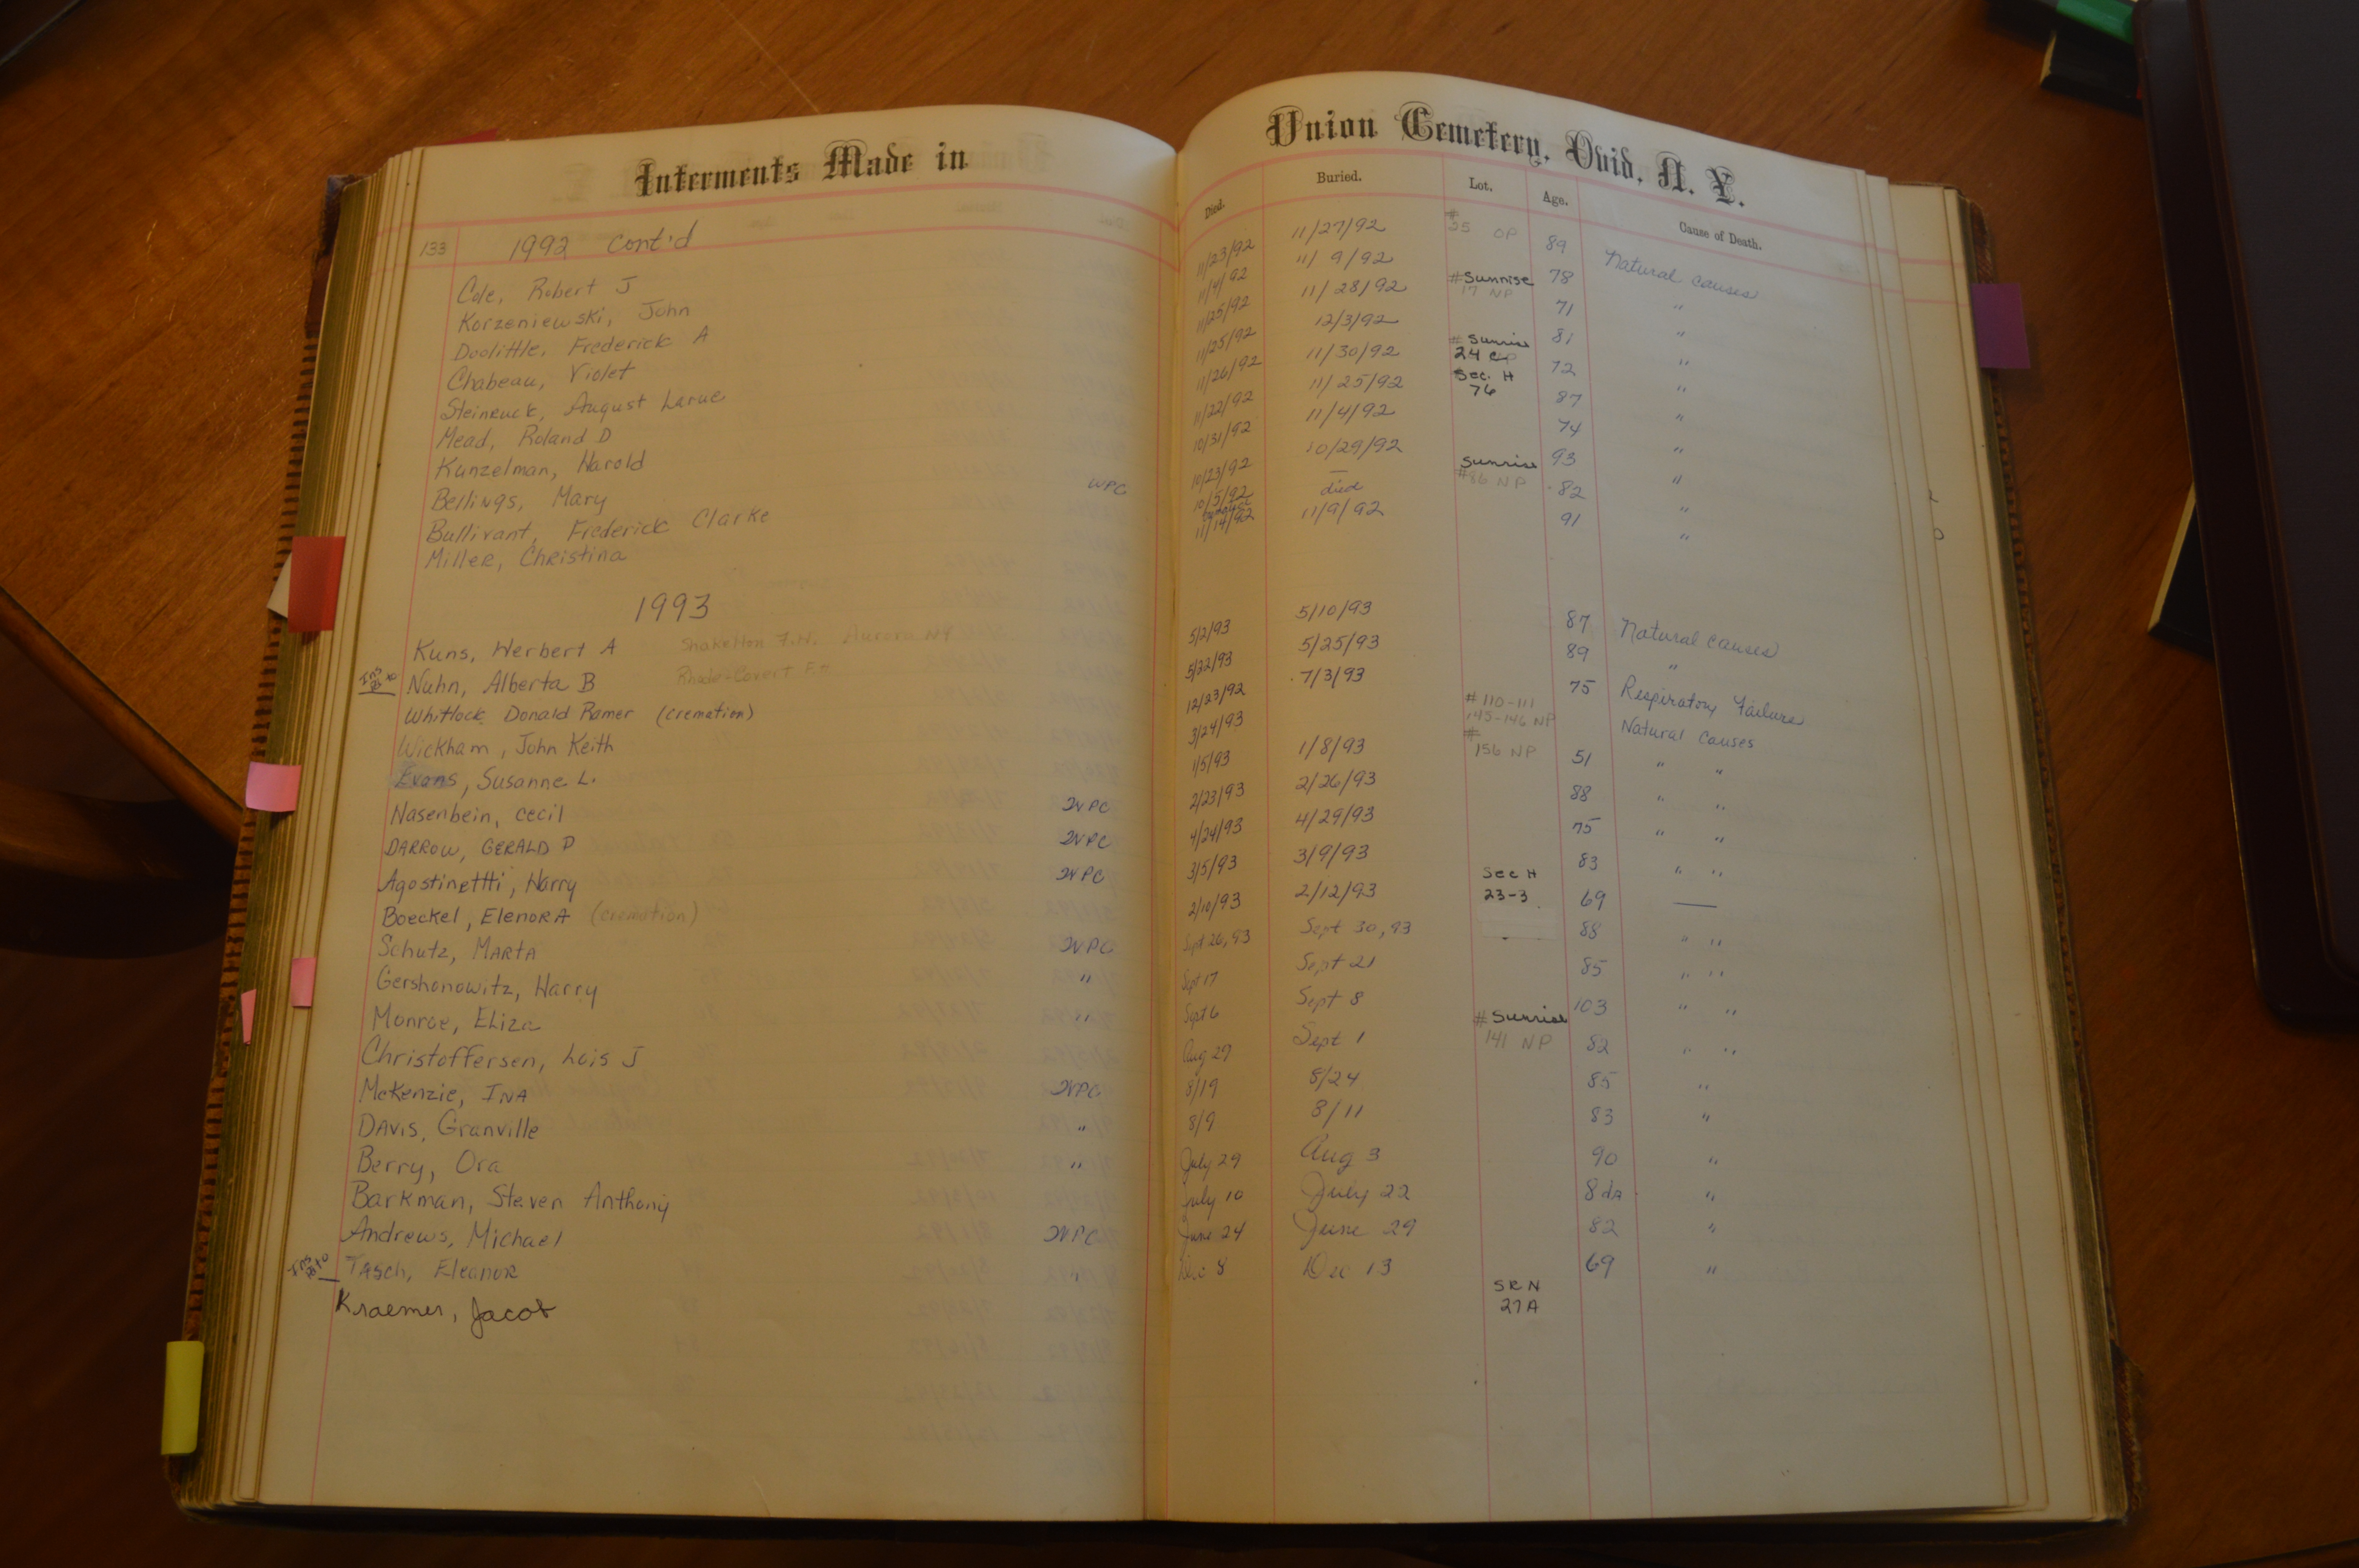 Interments Made in
133 1992 Cont'd
Cole, Robert J
Korzeniewski, John
Doolittle, Frederick A
Chabeau, Violet
Steinruck, August Larue
Mead, Roland D
Kunzelman, Harold
Bellings, Mary WPC
Bullivant, Frederick Clarke
Miller, Christina
1993
Kuns, Herbert A Shakelton F.H. Aurora NY
Nuhn, Alberta B
Whitlock Donald Ramer (cremation)
Wickham, John Keith
Evans, Susanne L.
Nasenbein, Cecil WPC
DARROW, GERALD D WPC
Agostinettti, Harry WPC
Boeckel, ElenorA (cremation)
Schutz, MARTA WPC
Gershonowitz, Harry "
Monroe, Eliza "
Christoffersen, Lois J
McKenzie, INA WPC
DAVIS, Granville "
Berry, Ora "
Barkman, Steven Anthony
Andrews, Michael WPC
TASCH, EleanoR "
Kraemer, Jacob
Union Cemetery, Ovid, N. Y.
Died. Buried. Lot. Age. Cause of Death.
11/23/92 11/27/92 #35 OP 89 Natural causes
11/4/92 11/9/92 78 "
11/25/92 11/28/92 #Sunrise 17 NP 71 "
11/25/92 12/3/92 81 "
11/26/92 11/30/92 #Sunrise 24 72 "
11/22/92 11/25/92 Sec. H 76 87 "
10/31/92 11/4/92 74 "
10/23/92 10/29/92 93 "
10/5/92 — Sunrise #86 NP 82 "
11/14/92 died 11/9/92 91 "
5/2/93 5/10/93 87 Natural causes
5/22/93 5/25/93 89 "
12/23/92 7/3/93 75 Respiratory Failure
3/24/93 #110-111 145-146 NP Natural Causes
1/5/93 1/8/93 #156 NP 51 " "
2/23/93 2/26/93 88 " "
4/24/93 4/29/93 75 " "
3/5/93 3/9/93 83 " "
2/10/93 2/12/93 Sec H 23-3 69 —
Sept 26, 93 Sept 30, 93 88 " "
Sept 17 Sept 21 85 " "
Sept 6 Sept 8 103 " "
Aug 29 Sept 1 #Sunrise 141 NP 82 " "
8/19 8/24 85 "
8/9 8/11 83 "
July 29 Aug 3 90 "
July 10 July 22 8 da "
June 24 June 29 82 "
Dec 8 Dec 13 69 "
SRN 27A